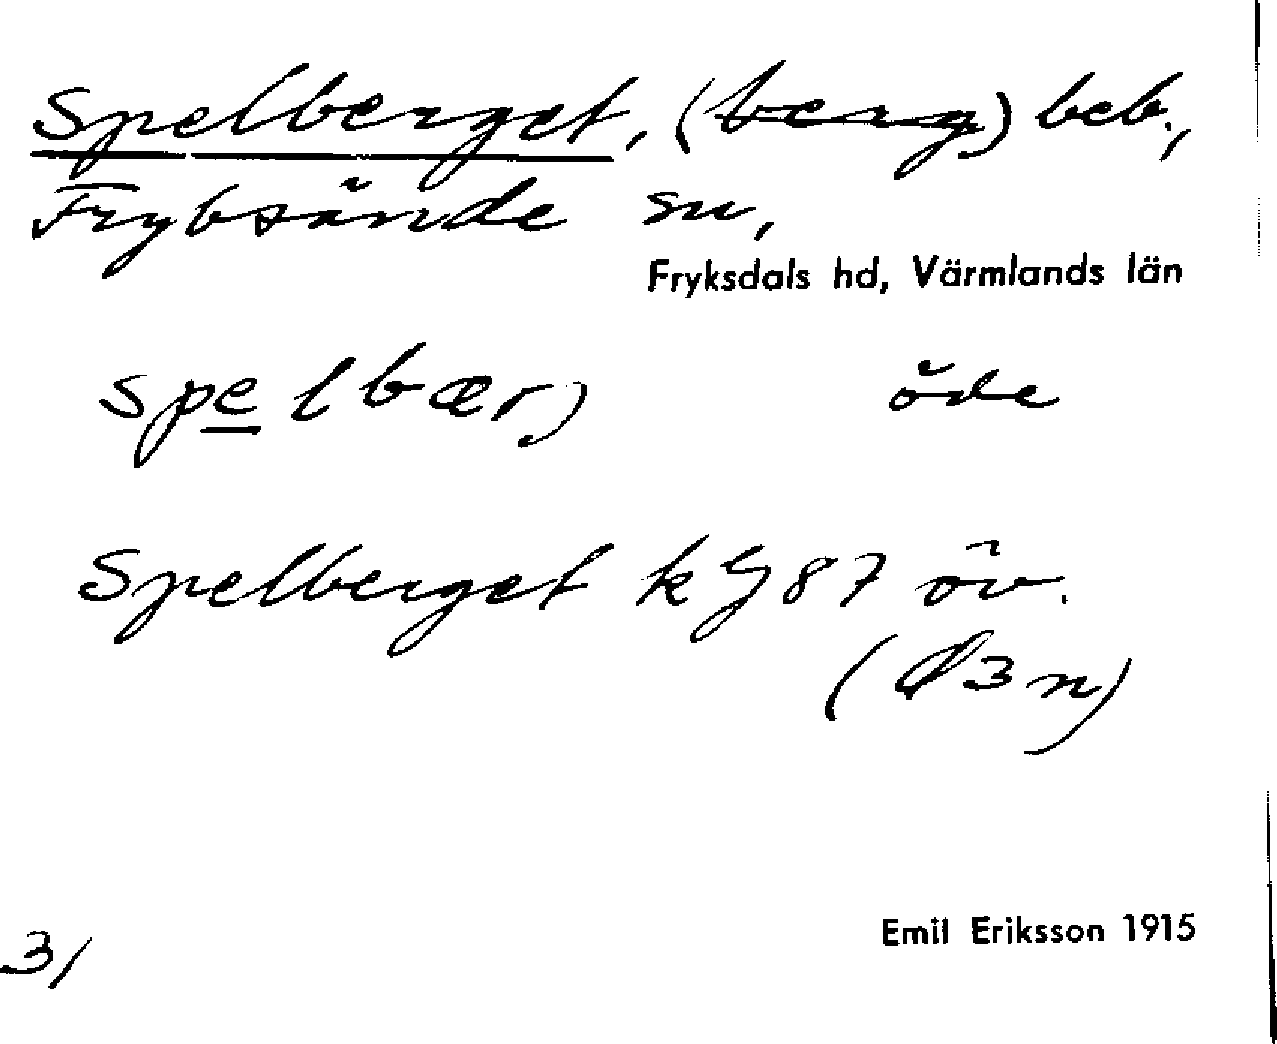 Spelberget, (berg) beb.,
Fryksände sn,
Fryksdals hd, Värmlands län
spelbær) öde
Spelberget kg 87 öv.
(Ø3n)
3/
Emil Eriksson 1915